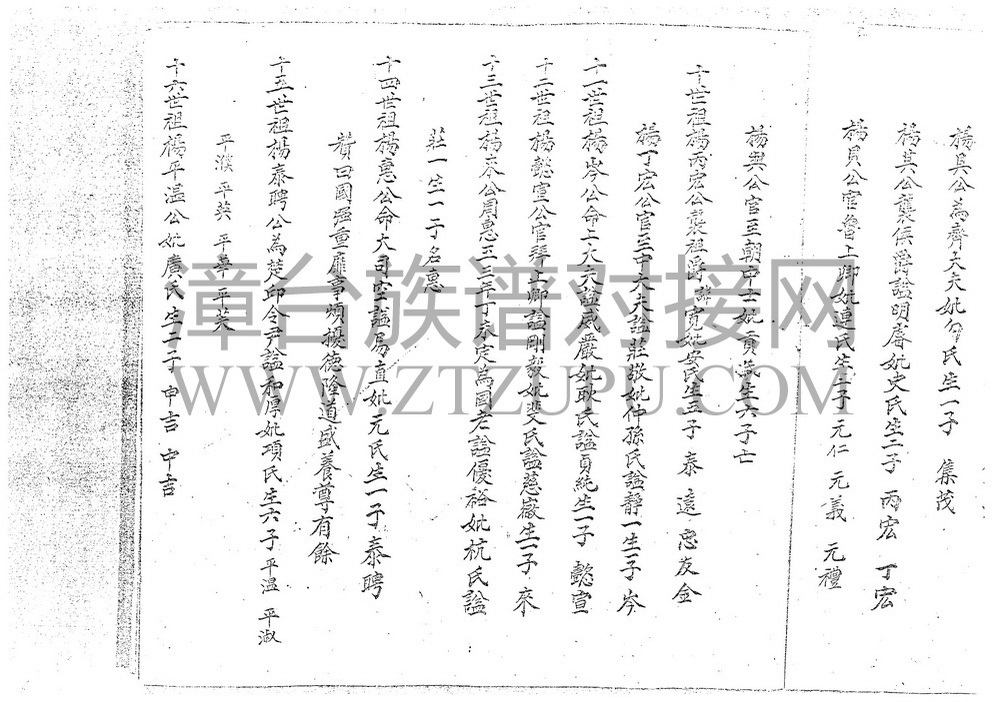 楊具公為齊大夫妣勾氏生一子 集茂
楊其公襲侯爵謚明睿妣史氏生二子 丙宏 丁宏
楊貝公官魯上卿妣連氏生三子元仁 元義 元禮
楊與公官至朝中士妣貢氏生六子亡
十世祖楊丙宏公襲祖爵謚寬妣安氏生五子 泰 遠 忠友金
楊丁宏公官至中大夫謚莊敬妣仲孫氏謚靜一生三子岑
十一世祖楊岑公命上大夫謚威嚴妣耿氏謚貞純生一子 懿宣
十二世祖楊懿宣公官拜上卿謚剛毅妣斐氏謚慈嶶生一子 來
十三世祖楊來公周惠王三丁未定為國老謚優裕妣杭氏謚
莊一生一子名惠
十四世祖楊惠公命大司空謚易直妣元氏生一子泰聘
贊曰國深重靡事煩擾德隆道盛養尊有餘
十五世祖楊泰聘公為楚邱令尹謚和厚妣項氏生六子平溫 平淑
平濮 平英 平華 平芙
十六世祖楊平溫公妣廣氏生二子 申吉 中吉
漳台族谱对接网
WWW.ZTZUPU.COM